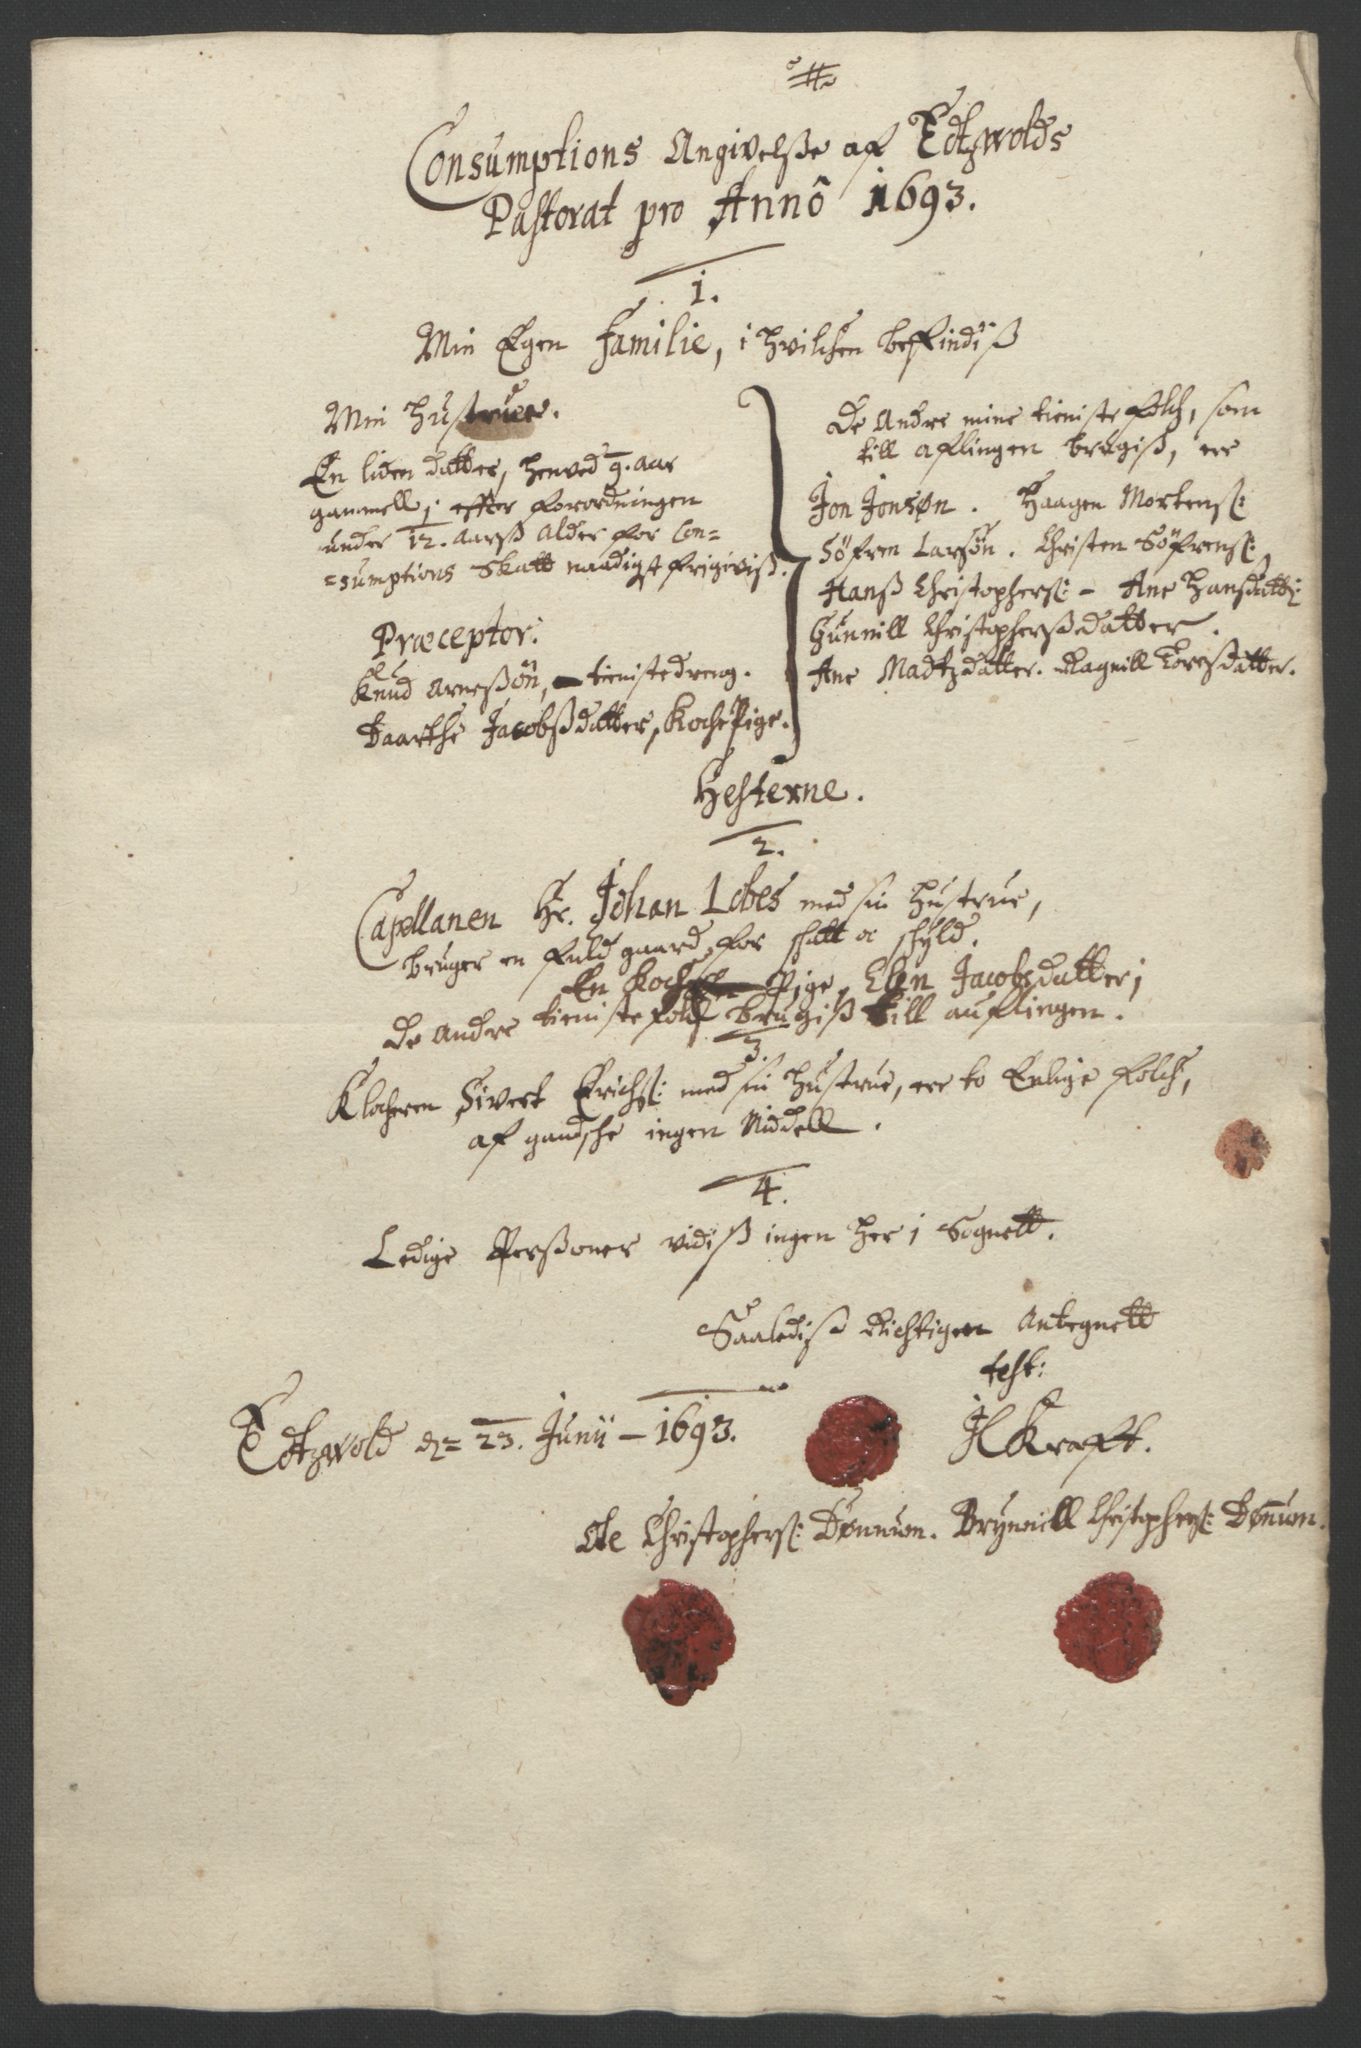 Consumptions Angivelße af Edtzwolds
Pastorat pro Annô 1693.
1.
Min Egen Familie, i hvilchen befindiß
Min Hustrue.
En liden datter, henved 9. aar
gammell, effter forordningen
under 12. aarß Alder for Con=
=sumptions Skatt naadigst frigiviß.
Præceptor.
Knud Arneßön, tienistedreng.
Daarthe Jacobßdatter, KochePige.
De Andre mine tienistefolch, som
till aflingen brugiß, ere
Jon Jonsøn. Haagen Mortens:
Söfren Larsön. Christen Söfrens:
Hanß Christophers: - Ane Hansdatt:
Gunnill Christopherßdatter.
Ane Madtzdatter. Ragnill Toresdatter.
Hesterne.
2.
Capellanen Hr. Johan Lobes med sin Hustrue,
bruger en fuld gaard for skatt oc skyld.
En Koche Pige, Elen Jacobsdatter,
De andre tienistefolch brugiß till auflingen.
3.
Klocheren Sivert Erichs: med sin Hustrue, ere to Enlige folch,
af gandsche ingen Middell.
4.
Ledige Perßoner vidiß ingen her i Sognett.
Saalediß Richtigen Antegnett
test:
Edtzwold dn 23. Junii - 1693.
JLKraft.
Ole Christophers: Dønnum. Brynnill Christophers: Dønum.